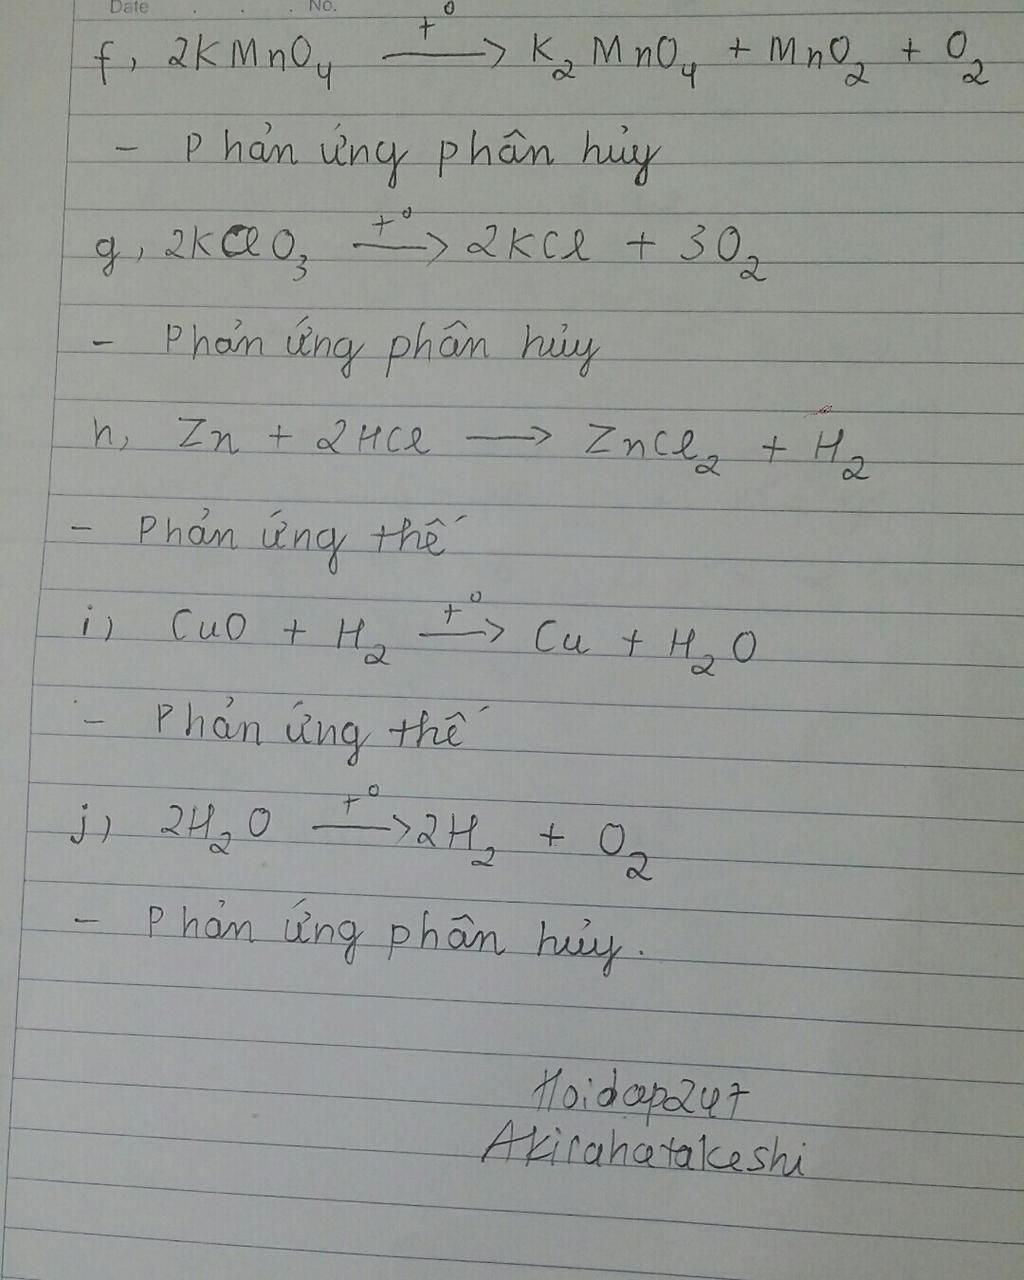 Date . . . No.
f, 2KMnO₄ —t°→ K₂MnO₄ + MnO₂ + O₂
- Phản ứng phân hủy
g, 2KClO₃ —t°→ 2KCl + 3O₂
- Phản ứng phân hủy
h, Zn + 2HCl → ZnCl₂ + H₂
- Phản ứng thế
i) CuO + H₂ —t°→ Cu + H₂O
- Phản ứng thế
j) 2H₂O —t°→ 2H₂ + O₂
- Phản ứng phân hủy.
Hoidap247
Akirahatakeshi